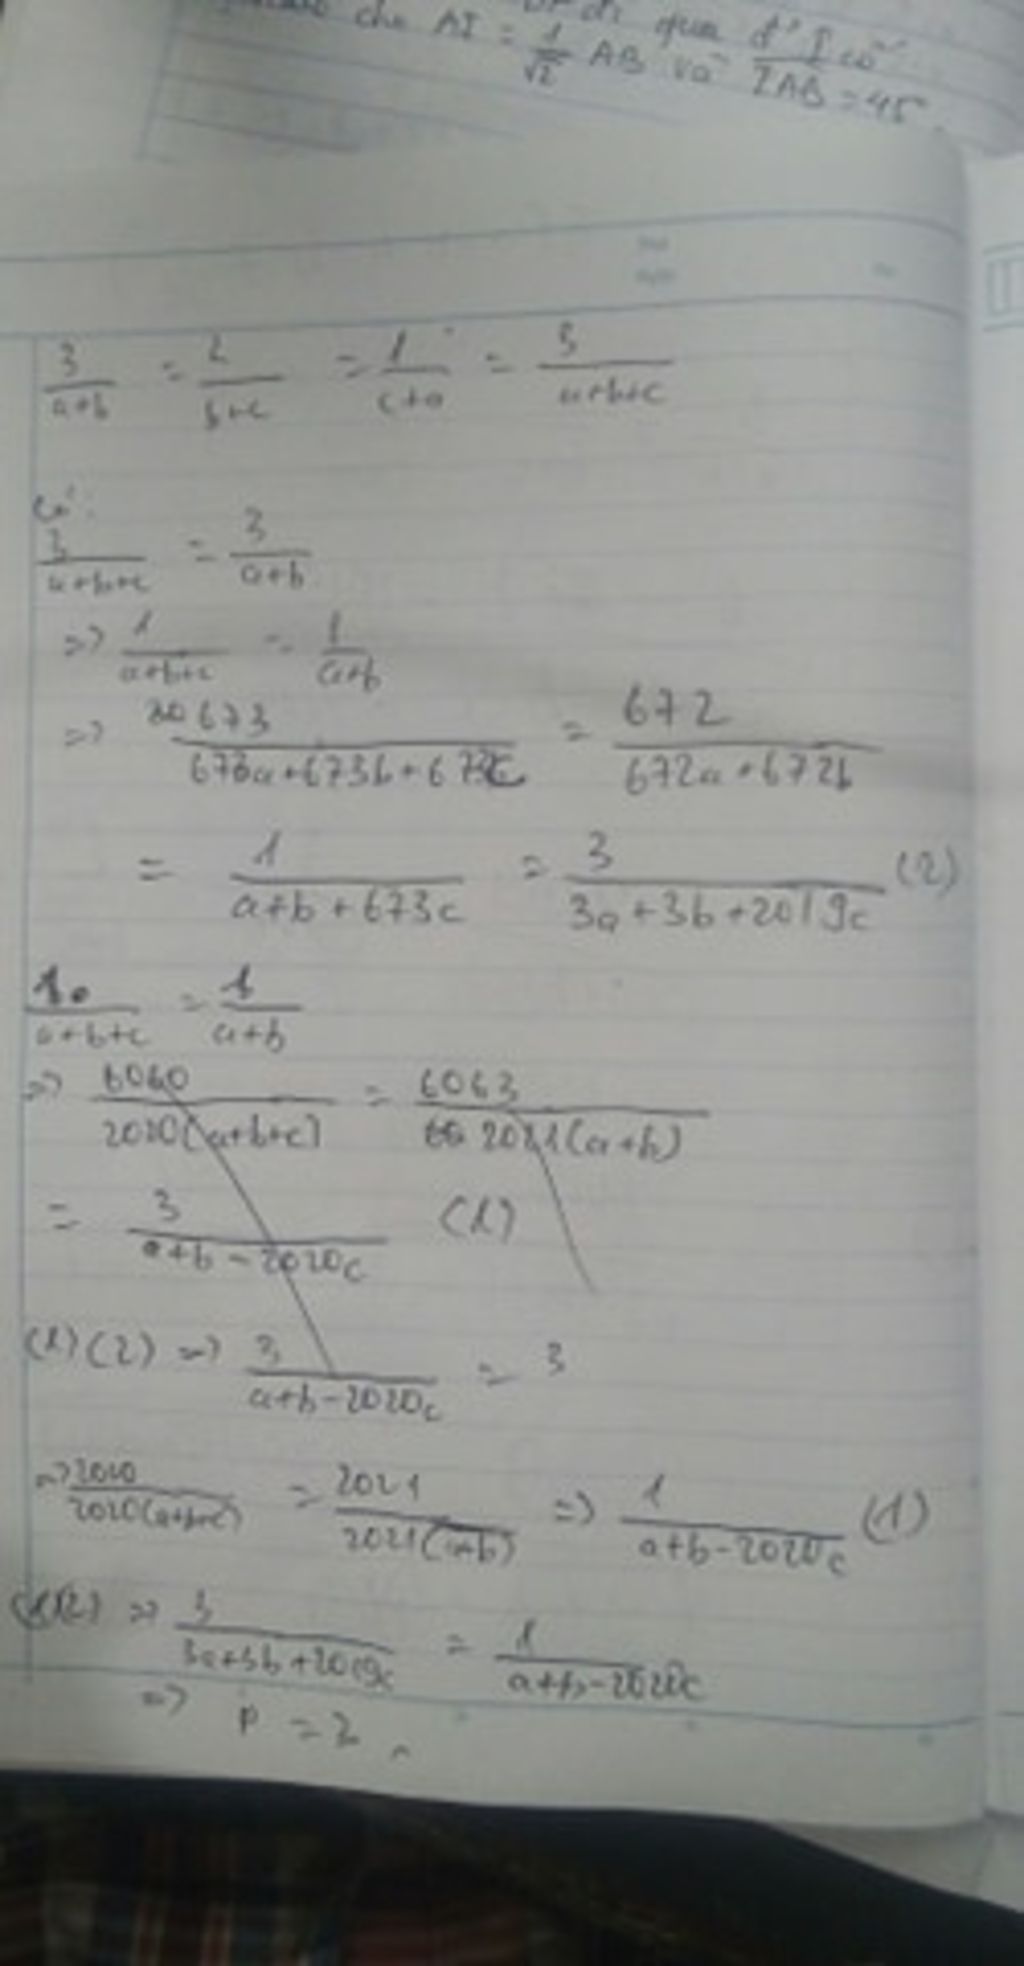 cho AI = 1/√2 AB và IAB = 45°
qua đ' I có
3/(a+b) = 2/(b+c) = 1/(c+a) = 3/(a+b+c)
có:
3/(a+b+c) = 3/(a+b)
=> 1/(a+b+c) = 1/(a+b)
=> 673/(673a+673b+673c) = 672/(672a+672b)
= 1/(a+b+673c) = 3/(3a+3b+2019c) (2)
1/(a+b+c) = 1/(a+b)
=> 6060/(2020(a+b+c)) = 6063/(2021(a+b))
= 3/(a+b-2020c) (1)
(1)(2) => 3/(a+b-2020c) = 3
=> 2020/(2020(a+b+c)) = 2021/(2021(a+b)) => 1/(a+b-2020c) (1)
(1)(2) => 3/(3a+3b+2019c) = 1/(a+b-2020c)
=> P = 3